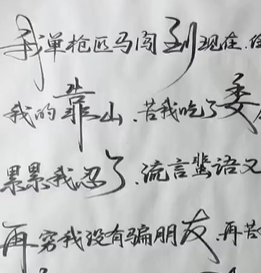 我单枪匹马闯到现在.
我的靠山.苦我吃了委
累累我忍了.流言蜚语又
再穷我没有骗朋友.再苦